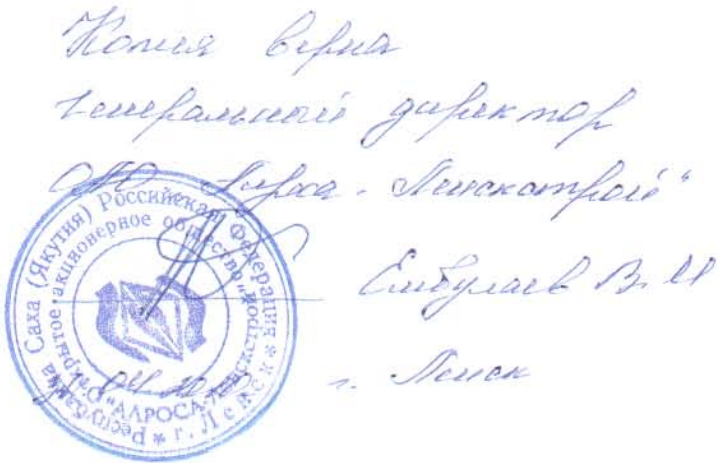 Копия верна
генеральный директор
ОАО "Алроса-Ленскстрой"
Ембулаев В. И
г. Ленск
Республика Саха (Якутия) Российская Федерация * г. Ленск *
Открытое акционерное общество "АЛРОСА-Ленскстрой"